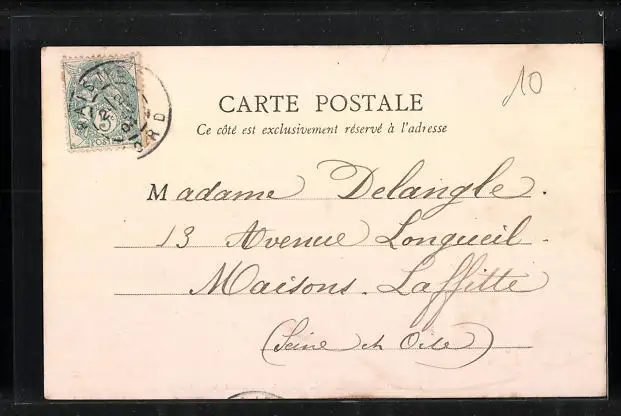 10
CARTE POSTALE
Ce côté est exclusivement réservé à l'adresse
Madame Delangle.
13 Avenue Longueil
Maisons-Laffitte
(Seine et Oise)
5
POSTES